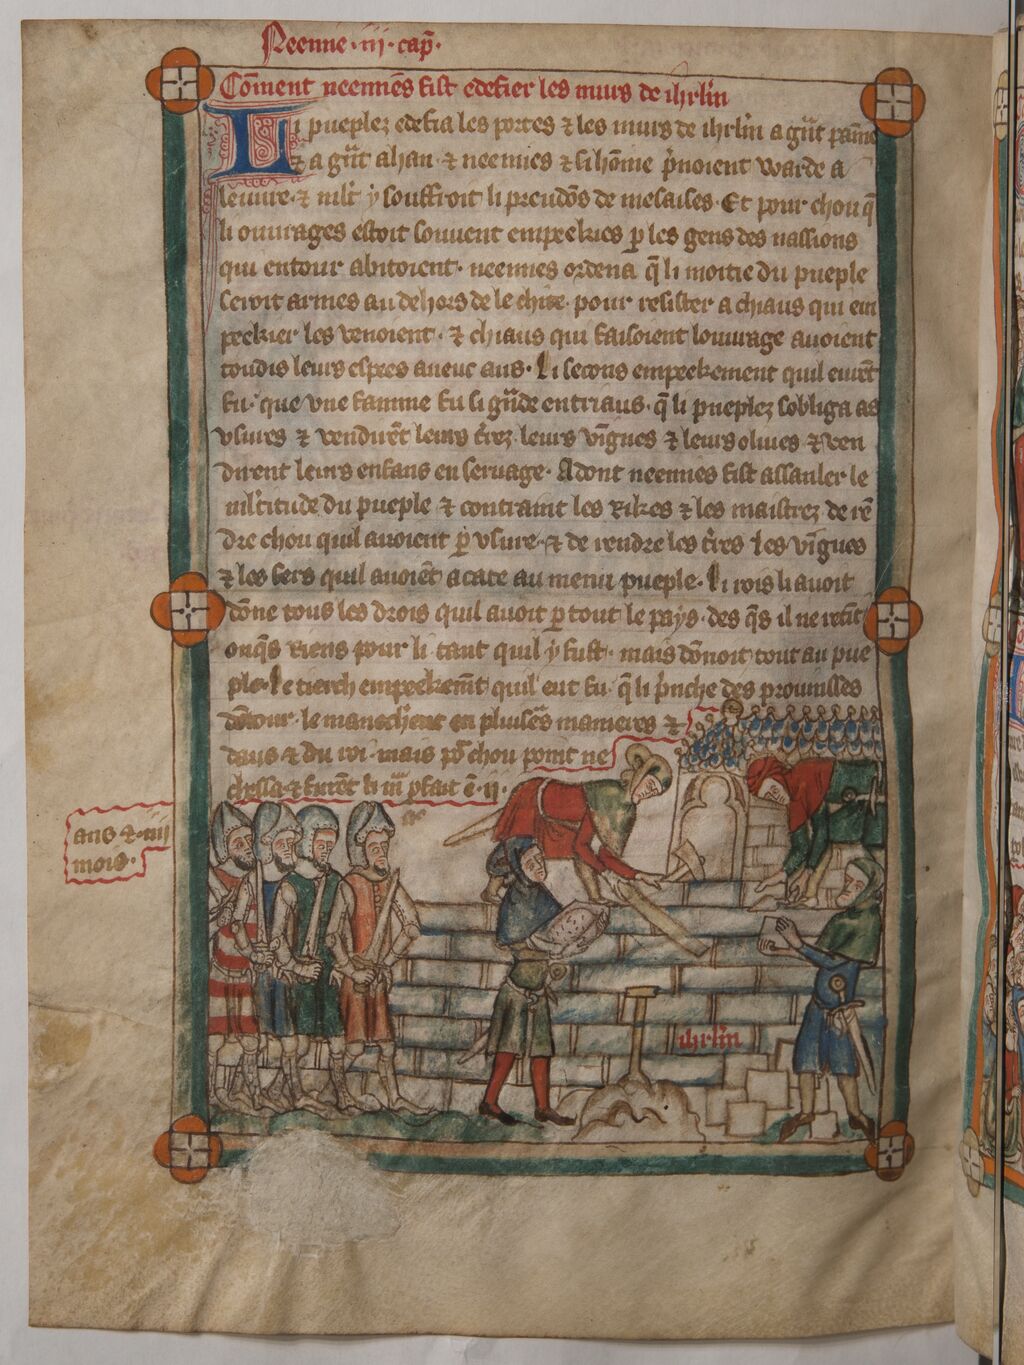 Neenne .iij. cap̄.
Cōment neemies fist edefier les murs de ihrlīn
Li pueplez edefia les portes ⁊ les murs de ihrlīn a gn̄t paine
⁊ a gn̄t ahan ⁊ neemies ⁊ si hōme p̄noient warde a
leuure ⁊ mlt̄ y souffroit li preudōs de mesaises. Et pour chou q̄
li ouurages estoit souuent empeekies p̄ les gens des nassions
qui entour abitoient. neemies ordena q̄ li moitie du pueple
seroit armes au dehors de le chite. pour resister a chiaus qui em
peekier les venoient. ⁊ chiaus qui faisoient louurage auoient
toudis leurs espees auenc aus. Li secons empeekement quil eurēt
fu. que vne famine fu si gn̄de entriaus. q̄ li pueplez sobliga as
vsures ⁊ vendirēt leurs t̄rez leurs vīgnes ⁊ leurs oliues ⁊ ven
dirent leurs enfans en seruage. Adont neemies fist assanler le
mlt̄itude du pueple ⁊ contraint les Rikes ⁊ les maistrez de rē
dre chou quil auoient p̄ vsure. ⁊ de rendre les t̄res les vīgnes
⁊ les sers quil auoiēt acate au menu pueple. Li rois li auoit
dōne tous les drois quil auoit p̄ tout le pays. des q̄s il ne retīt
onq̄s Riens pour li tant quil y fust. mais dōnoit tout au pue
ple. Le tierch empeekemt̄ quil eut fu. q̄ li p̄nche des prouinsses
dētour. le manechent en pluisēs manieres ⁊
daus ⁊ du roi. mais po᷑ chou point ne
chessa ⁊ furēt li mur pfait ē .ij.
ans ⁊ .iiij
mois.
ihrlīn